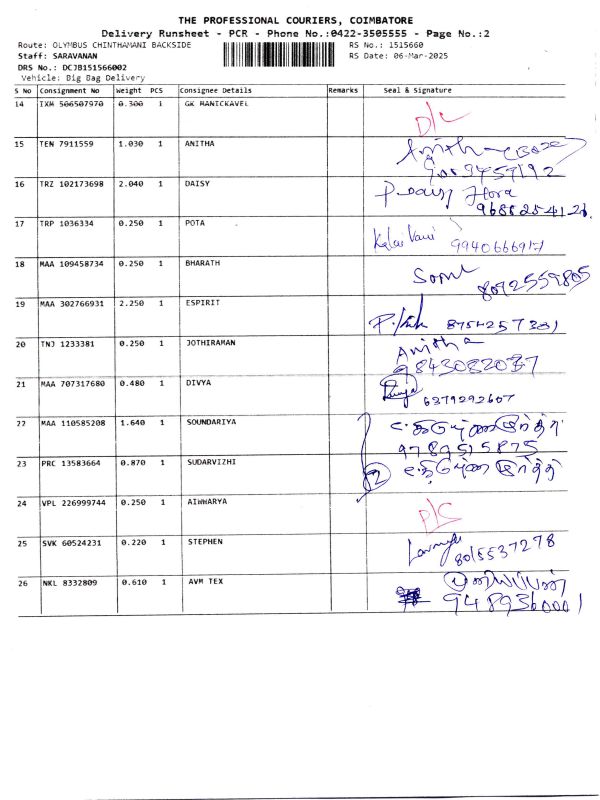 THE PROFESSIONAL COURIERS, COIMBATORE
Delivery Runsheet - PCR - Phone No.:0422-3505555 - Page No.:2
Route: OLYMBUS CHINTHAMANI BACKSIDE RS No.: 1515660
Staff: SARAVANAN RS Date: 06-Mar-2025
DRS No.: DCJB151566002
Vehicle: Big Bag Delivery
S No Consignment No Weight PCS Consignee Details Remarks Seal & Signature
14 IXM 506507970 0.300 1 GK MANICKAVEL D/C
15 TEN 7911559 1.030 1 ANITHA Anitha
16 TRZ 102173698 2.040 1 DAISY P. Daisy Flora
9688254126
17 TRP 1036334 0.250 1 POTA Kalai Vani 9940666917
18 MAA 109458734 0.250 1 BHARATH 8072559805
19 MAA 302766931 2.250 1 ESPIRIT 8754257331
20 TNJ 1233381 0.250 1 JOTHIRAMAN Anitha
9843082077
21 MAA 707317680 0.480 1 DIVYA Divya
6379292607
22 MAA 110585208 1.640 1 SOUNDARIYA
9789515875
23 PRC 13583664 0.870 1 SUDARVIZHI 2
24 VPL 226999744 0.250 1 AIWWARYA D/C
25 SVK 60524231 0.220 1 STEPHEN 8015537278
26 NKL 8332809 0.610 1 AVM TEX
9489360001